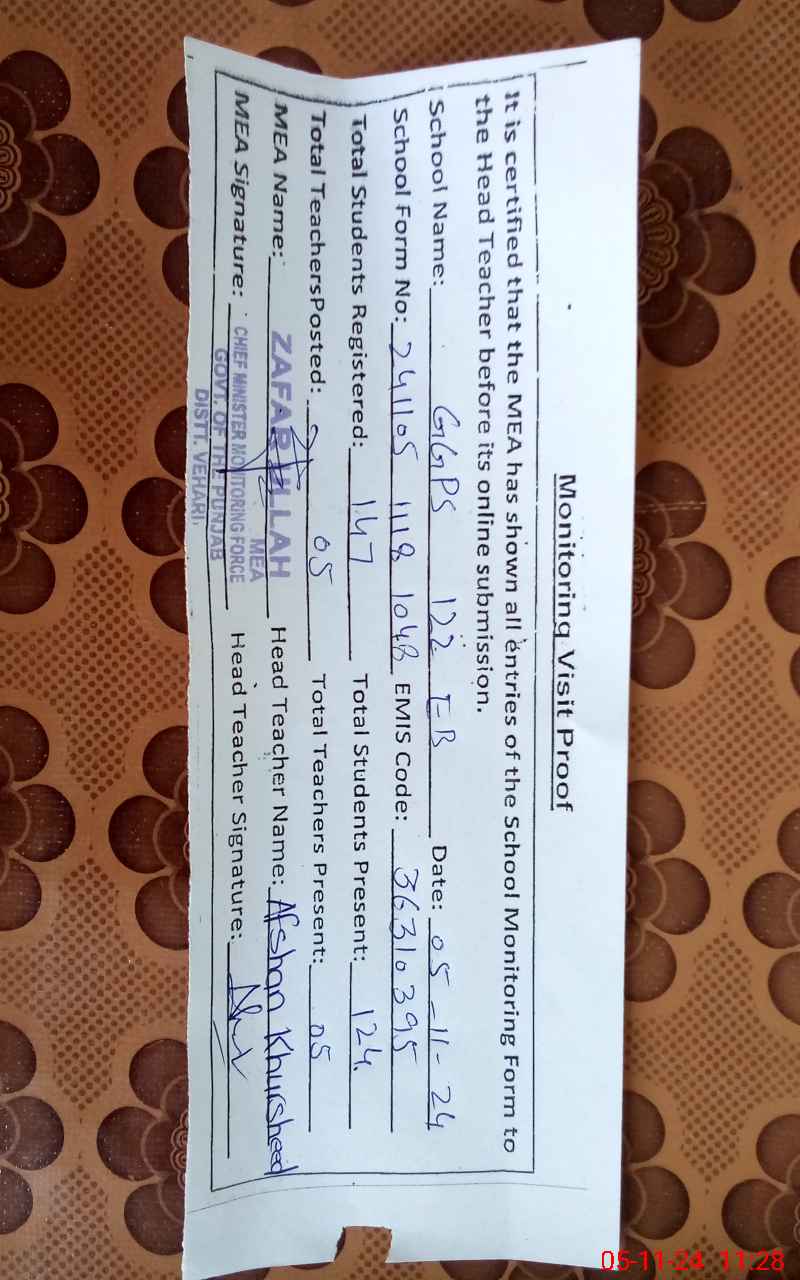 Monitoring Visit Proof
It is certified that the MEA has shown all entries of the School Monitoring Form to
the Head Teacher before its online submission.
School Name: GGPS 122 EB Date: 05-11-24
School Form No: 241105 1118 1048 EMIS Code: 36310395
Total Students Registered: 147 Total Students Present: 124.
Total TeachersPosted: 05 Total Teachers Present: 05
MEA Name: ZAFAR ULLAH Head Teacher Name: Afshan Khursheed
MEA
MEA Signature: CHIEF MINISTER MONITORING FORCE Head Teacher Signature:
GOVT. OF THE PUNJAB
DISTT. VEHARI.
05-11-24 11:28